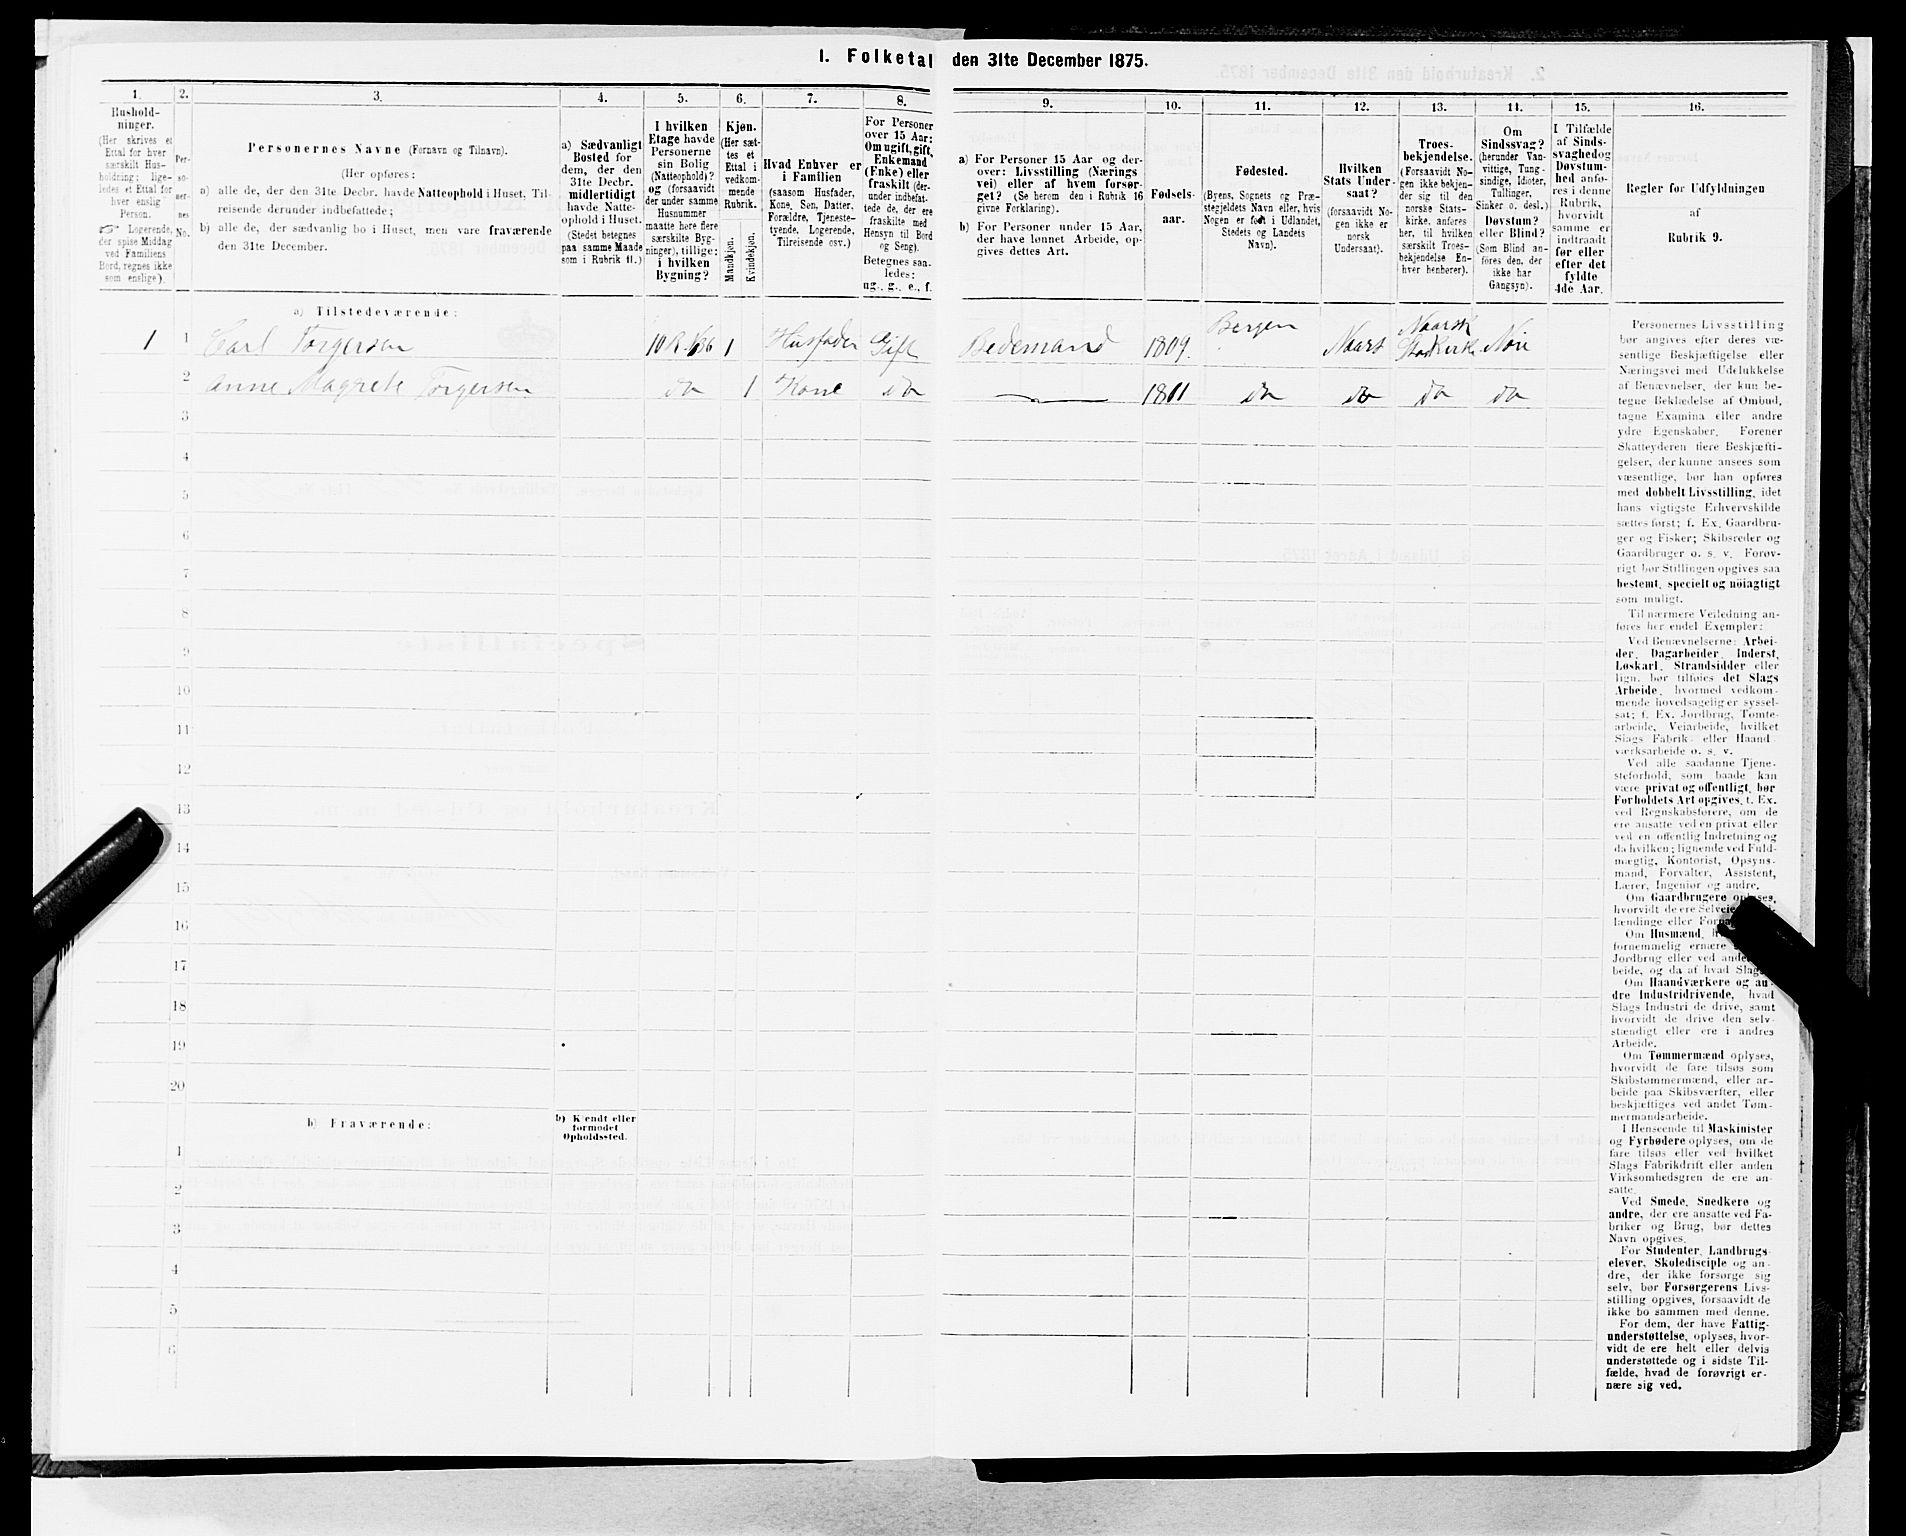 1. Folketal den 31te December 1875.
1.
Husholdninger.
(Her skrives et
Ettal for hver
særskilt Husholdning; ligeledes et Ettal for
hver enslig
Person.
☞ Logerende,
der spise Middag
ved Familiens
Bord, regnes ikke
som enslige).
2.
Personernes
No.
3.
Personernes Navne (Fornavn og Tilnavn).
(Her opføres:
a) alle de, der den 31te Decbr. havde Natteophold i Huset, Tilreisende derunder indbefattede;
b) alle de, der sædvanlig bo i Huset, men vare fraværende
den 31te December.
4.
a) Sædvanligt
Bosted for
dem, der den
31te Decbr.
midlertidigt
havde Natteophold i Huset.
(Stedet betegnes
paa samme Maade
som i Rubrik 11.)
5.
I hvilken
Etage havde
Personerne
sin Bolig
(Natteophold)?
og (forsaavidt
der under samme
Husnummer
maatte høre flere
særskilte Bygninger), tillige:
i hvilken
Bygning?
6.
Kjøn.
(Her sættes et
Ettal i
vedkommende
Rubrik.
Mandkjøn.
Kvindekjøn.
7.
Hvad Enhver er
i Familien
(saasom Husfader,
Kone, Søn, Datter,
Forældre, Tjenestetyende, Logerende,
Tilreisende osv.)
8.
For Personer
over 15 Aar:
Om ugift, gift,
Enkemand
(Enke) eller
fraskilt (derunder indbefattede de, der ere
fraskilte med
Hensyn til Bord
og Seng).
Betegnes saaledes:
ug., g., e., f.
9.
a) For Personer 15 Aar og derover: Livsstilling (Næringsvei) eller af hvem forsørget? (Se herom den i Rubrik 16
givne Forklaring).
b) For Personer under 15 Aar,
der have lønnet Arbeide, opgives dettes Art.
10.
Fødselsaar.
11.
Fødested.
(Byens, Sognets og Præstegjeldets Navn eller, hvis
Nogen er født i Udlandet,
Stedets og Landets
Navn).
12.
Hvilken
Stats Undersaat?
(forsaavidt Nogen ikke er
norsk
Undersaat).
13.
Troesbekjendelse.
(Forsaavidt Nogen ikke bekjender sig til den
norske Statskirke, anføres
her, til hvilken
særskilt Troesbekjendelse Enhver henhører).
14.
Om
Sindssvag?
(herunder Vanvittige, Tungsindige, Idioter,
Tullinger,
Sinker o. desl.)
Døvstum?
eller Blind?
(Som Blind anføres den, der
ikke har
Gangsyn).
15.
I Tilfælde
af Sindssvaghed og
Døvstumhed anføres i denne
Rubrik,
hvorvidt
samme er
indtraadt
før eller
efter det
fyldte
4de Aar.
16.
Regler for Udfyldningen
af
Rubrik 9.
a) Tilstedeværende:
1 1 Carl Torgersen 1 Husfader Gift Bedemand 1809 Bergen Norsk Statskirke
2 Anne Magrete Torgersen do 1 Kone do 1811 do do do do
3
4
5
6
7
8
9
10
11
12
13
14
15
16
17
18
19
20
b) Fraværende:
b) Kjendt eller
formodet
Opholdssted.
1
2
3
4
5
6
Personernes Livsstilling
bør angives efter deres væsentlige Beskjæftigelse eller
Næringsvei med Udelukkelse
af Benævnelser, der kun betegne Beklædelse af Ombud,
tagne Examina eller andre
ydre Egenskaber. Forener
Skatteyderen flere Beskjæftigelser, der kunne ansees som
væsentlige, bør han opføres
med dobbelt Livsstilling, idet
hans vigtigste Erhvervskilde
sættes først; f. Ex. Gaardbruger og Fisker; Skibsreder og
Gaardbruger o. s. v. Forøvrigt bør Stillingen opgives saa
bestemt, specielt og nöiagtigt
som muligt.
Til nærmere Veiledning anføres her endel Exempler:
Ved Benævnelserne: Arbeider, Dagarbeider, Inderst,
Løskarl, Strandsidder eller
lign. bør tilføies det Slags
Arbeide, hvormed vedkommende hovedsagelig er sysselsat; f. Ex. Jordbrug, Tomtearbeide, Veiarbeide, hvilket
Slags Fabrik- eller Haandværksarbeide o. s. v.
Ved alle saadanne Tjenesteforhold, som baade kan
være privat og offentligt, bør
Forholdets Art opgives, f. Ex.
ved Regnskabsførere, om de
ere ansatte ved en privat eller
ved en offentlig Indretning og
da hvilken; lignende ved Fuldmægtig, Kontorist, Opsynsmand, Forvalter, Assistent,
Lærer, Ingeniør og andre.
Om Gaardbrugere
hvorvidt de ere
lændinge eller
Om Husmænd,
fornemmelig ernære
Jordbrug eller ved
og da af hvad
Om Haandværkere og andre Industridrivende, hvad
Slags Industri de drive, samt
hvorvidt de drive den selvstændigt eller ere i andres
Arbeide.
Om Tømmermænd oplyses,
hvorvidt de fare tilsøs som
Skibstømmermænd, eller arbeide paa Skibsværfter, eller
beskjæftiges ved andet Tømmermandsarbeide.
I Henseende til Maskinister
og Fyrbødere oplyses, om de
fare tilsøs eller ved hvilket
Slags Fabrikdrift eller anden
Virksomhedsgren de ere ansatte.
Ved Smede, Snedkere og
andre, der ere ansatte ved Fabriker og Brug, bør dettes
Navn opgives.
For Studenter, Landbrugselever, Skoledisciple og andre, der ikke forsørge sig
selv, bør Forsørgerens Livsstilling opgives, forsaavidt de
ikke bo sammen med denne.
For dem, der have Fattigunderstøttelse, oplyses, hvorvidt de ere helt eller delvis
understøttede og i sidste Tilfælde, hvad de forøvrigt ernære sig ved.